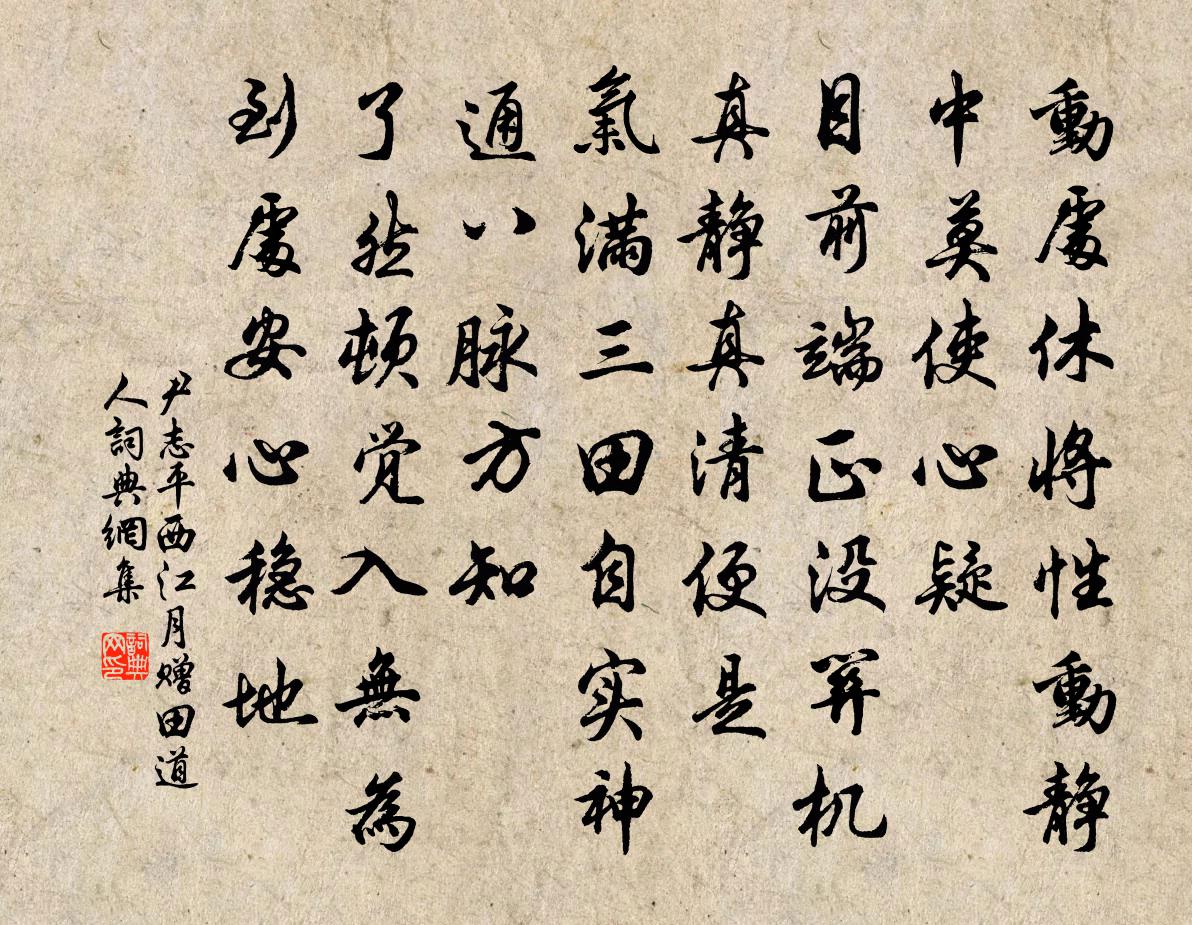 動處休將性動静
中莫使心疑
目前端正没关机
真静真清便是
氣滿三田自实神
通八脉方知
了然顿觉入無為
到處安心稳地
尹志平西江月赠田道
人詞典網集
詞典网印